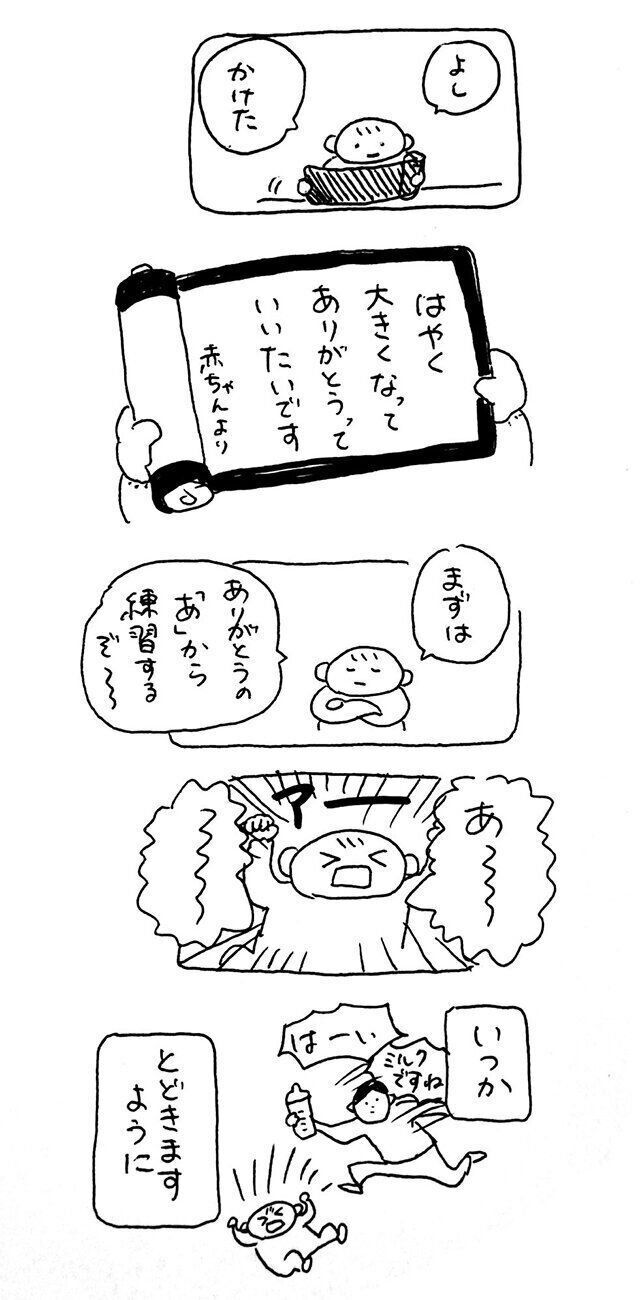 よし
かけた
はやく
大きくなって
ありがとうって
いいたいです
赤ちゃんより
まずは
ありがとうの
「あ」から
練習する
ぞ〜〜
あ〜〜
アー
いっか
ミルク
ですね
はーい
とどきます
ように